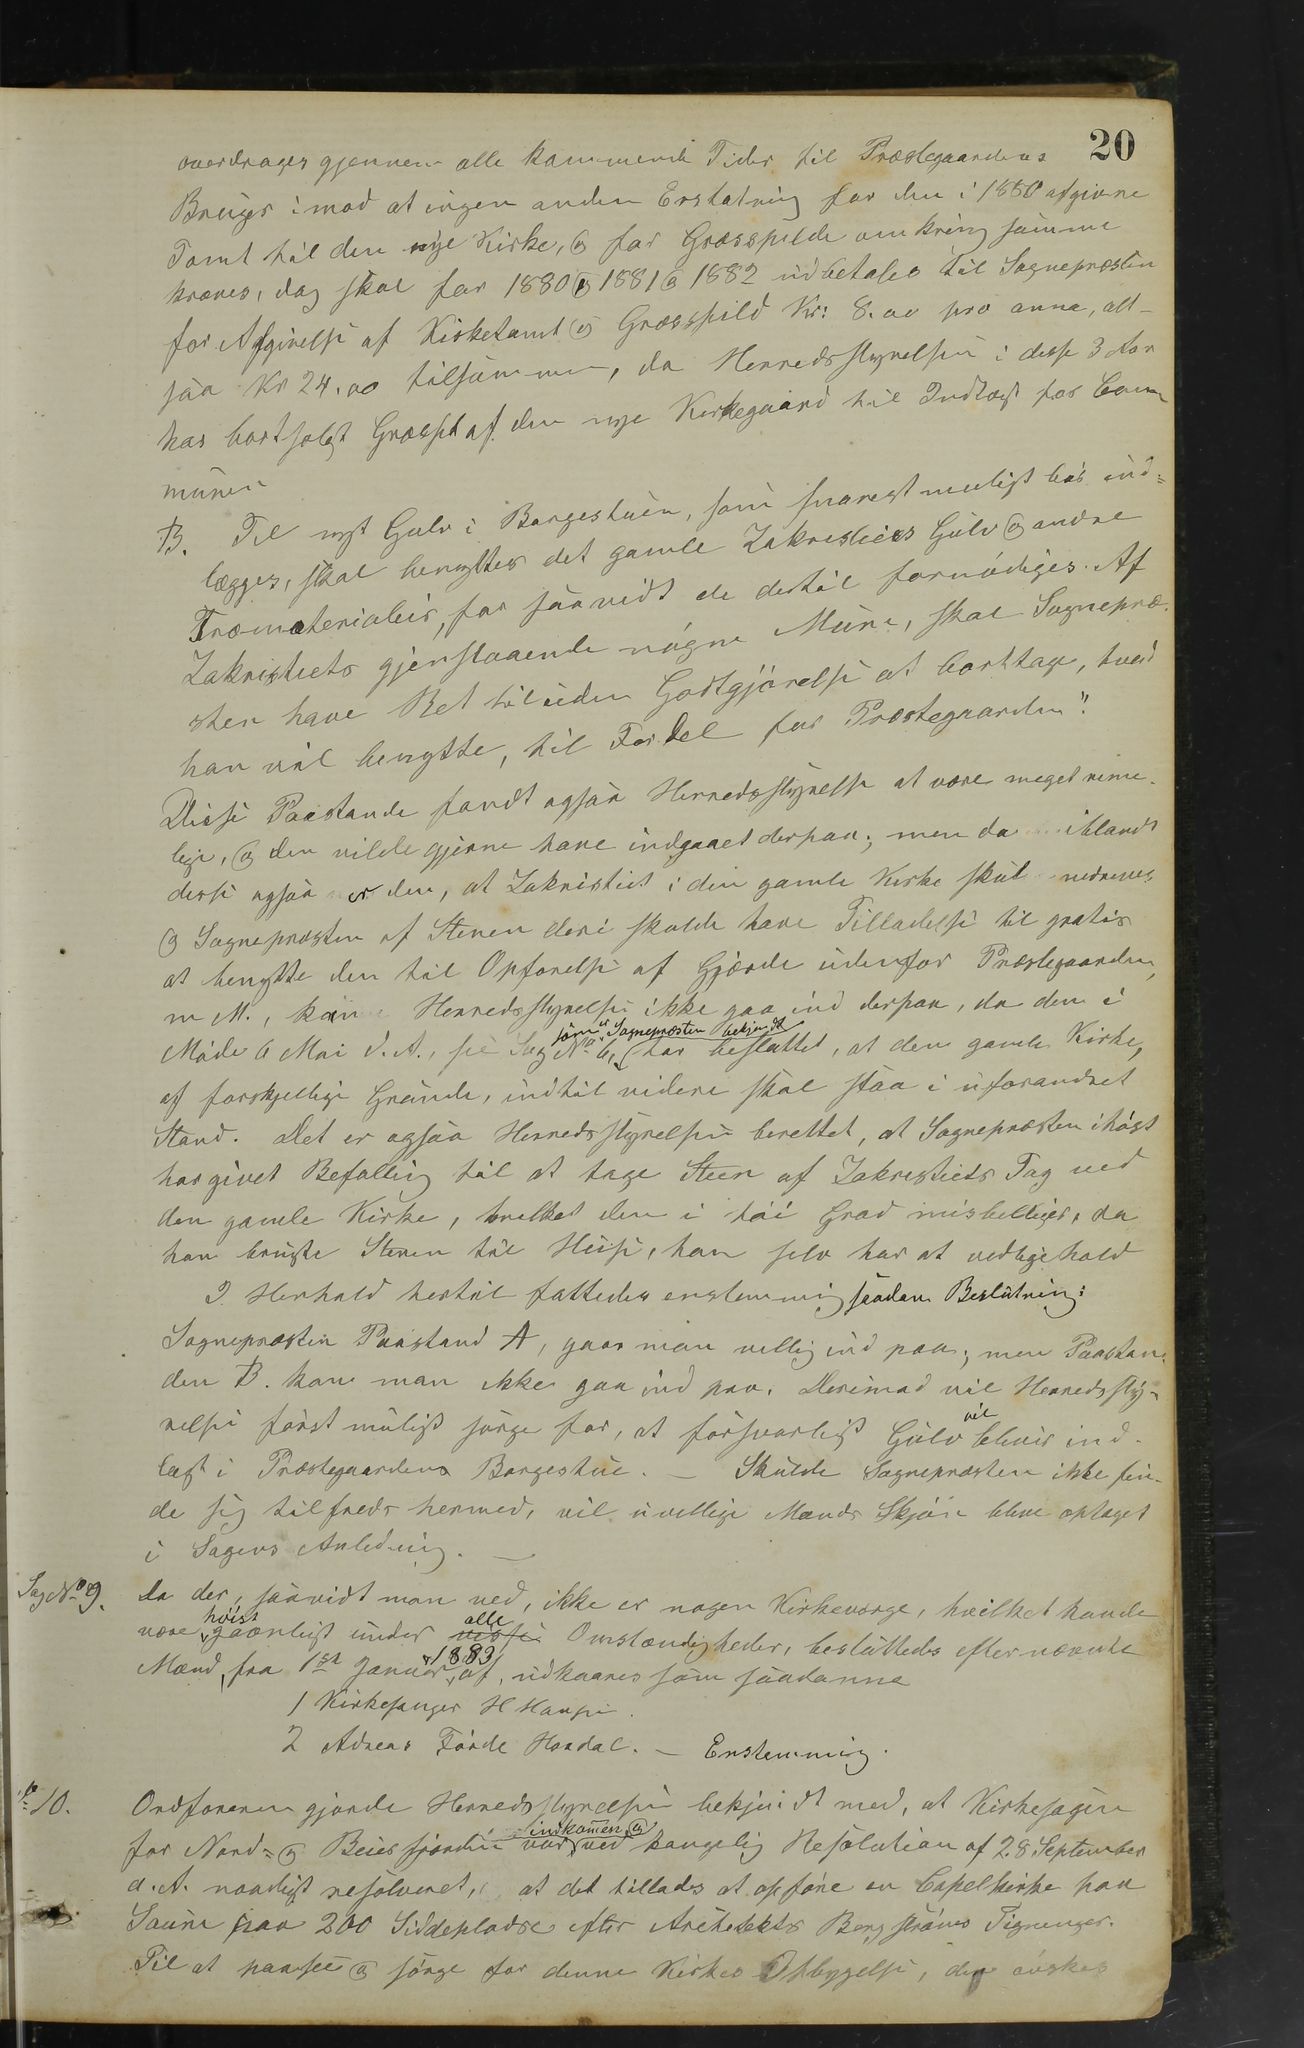 20
overdrages gjennem alle kommende Tider til Præstegaardens
Bruger imod at ingen anden Erstatning for den i 1880 afgivne
Tomt til den nye Kirke, og for Græsspilde omkring samme
kræves, dog skal for 1880 og 1881 og 1882 udbetales til Sognepræsten
for Afgivelse af Kirketomt og Græsspild Kr: 8.00 pro anno, alt-
saa Kr 24.00 tilsammen, da Herredsstyrelsen i disse 3 Aar
har bortsolgt Græsset af den nye Kirkegaard til Indtægt for Com
munen
B. Til nyt Gulv i Borgestuen, som snarest muligt bør ind=
lægges, skal benyttes det gamle Zakresties Gulv og andre
Træmaterialier, for saavidt de dertil fornødiges. Af
Zakristiets gjenstaaende nøgne Mure, skal Sognepræ-
sten have Ret til uden Godtgjørelse at borttage, hvad
han vil benytte, til Fordel for Præstegaarden".
Disse Paastande fandt ogsaa Herredsstyrelse at være meget rime-
lige, og den vilde gjerne have indgaaet derpaa; men da iblandt
disse ogsaa er den, at Zakristiet i den gamle Kirke skul nedrives
og Sognepræsten af Stenen deri skulde have Tilladelse til gratis
at benytte den til Opførelse af Gjærde udenfor Præstegaarden,
m M., kan Herredsstyrelsen ikke gaa ind derpaa, da den i
Møde 6 Mai d. A., se Sag No 6, som er Sognepræsten bekjendt har besluttet, at den gamle Kirke,
af forskjellige Grunde, indtil videre skal staa i uforandret
Stand. Det er ogsaa Herredsstyrelsen berettet, at Sognepræsten ihøst
har givet Befalling til at tage Steen af Zakrestiets Tag ved
den gamle Kirke, hvilket den i høi Grad misbilliger, da
han brugte Stenen til Huse, han selv har at vedligehold
I Henhold hertil fattedes enstemmig saadan Beslutning:
Sognepræsten Paastand A, gaar man villig ind paa; men Paastan-
den B. kan man ikke gaa ind paa. Derimod vil Herredssty-
relse først muligt sørge for, at forsvarligt Gulv vil bliver ind-
lagt i Præstegaardens Borgestue. — Skulde Sognepræsten ikke fin-
de sig tilfreds hermed, vil uvillige Mænds Skjøn blive optaget
i Sagens Anledning. —
Sag No 9. Da der, saavidt man ved, ikke er nogen Kirkeverge, hvilket kunde
være høist gavnligt under alle visse Omstændigheder, besluttedes efternævnte
Mænd, fra 1ste Januar 1883 af, udkaares som saadanne
1 Kirkesanger H Hansen.
2 Adreas Førde Hordal. — Enstemmig.
" 10. Ordføreren gjorde Herredsstyrelsen bekjendt med, at Kirkesagen
for Nord= og Beiesfjorden var indkommen og ved kongelig Resolution af 28 September
d. A. naadigst resolveret, at det tillades at opføre en Capelkirke paa
Saura paa 200 Siddepladse efter Architekts Bergstrøms Tigninger.
Til at paasee og sørge for denne Kirkes Opbygelse, den ønskes